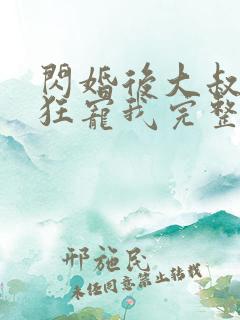 閃婚後大叔
狂寵我完整
邢施民
未经同意禁止转载